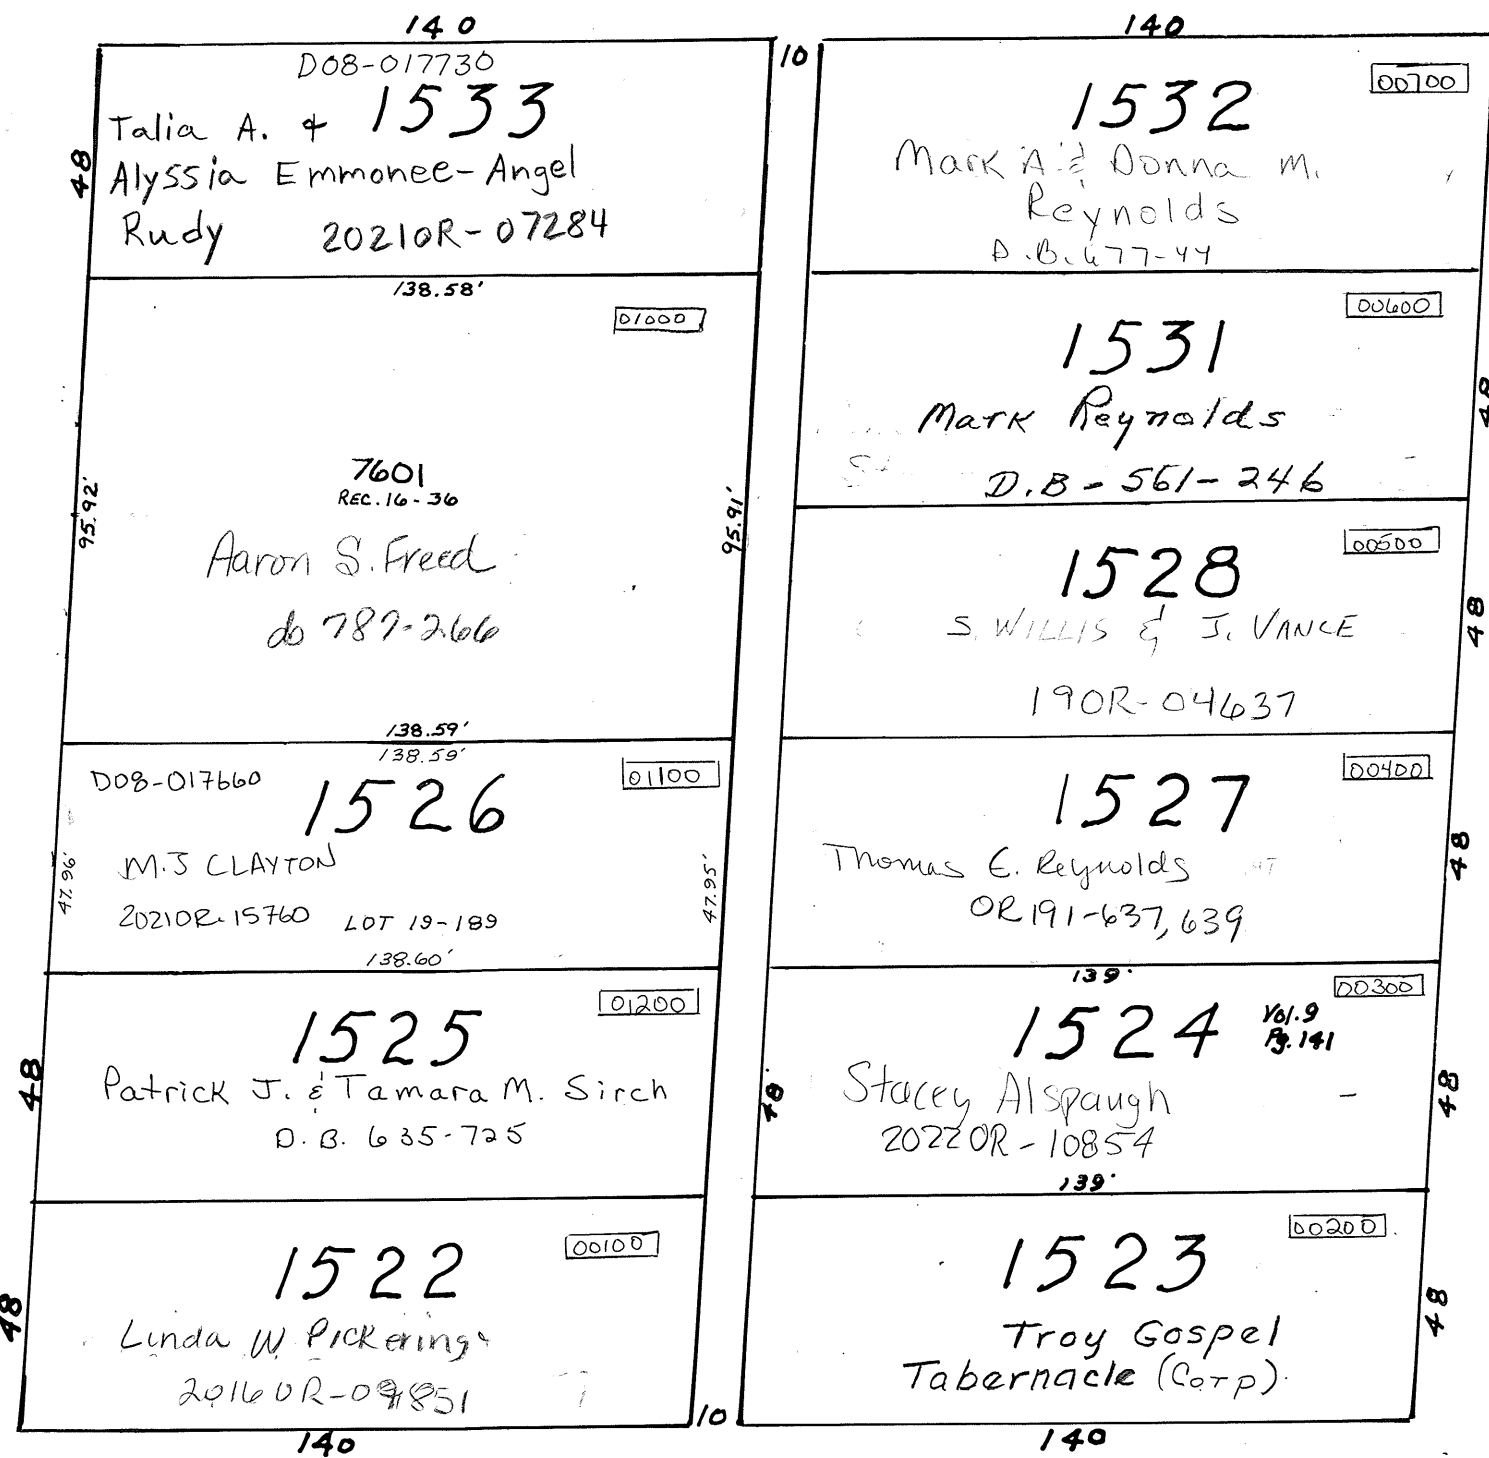 140
D08-017730
1533
Talia A. &
Alyssia Emmonee-Angel
Rudy 2021OR-07284
48
138.58'
01000
7601
REC. 16-36
Aaron S. Freed
db 787-266
95.92'
95.91'
138.59'
138.59'
D08-017660
1526
01100
M.J CLAYTON
2021OR-15760 LOT 19-189
47.96'
47.95'
138.60'
01200
1525
Patrick J. & Tamara M. Sirch
D.B. 635-725
48
00100
1522
Linda W Pickering
48
140
10
10
140
00700
1532
Mark A & Donna M.
Reynolds
D.B. 677-44
00600
1531
Mark Reynolds
D.B - 561-246
48
00500
1528
S. WILLIS & J. VANCE
19OR-04637
48
00400
1527
Thomas E. Reynolds
OR 191-637, 639
48
139'
00300
1524
Vol. 9
Pg. 141
Stacey Alspaugh
2022OR-10854
48
48
139'
00200
1523
Troy Gospel
Tabernacle (Corp).
48
140